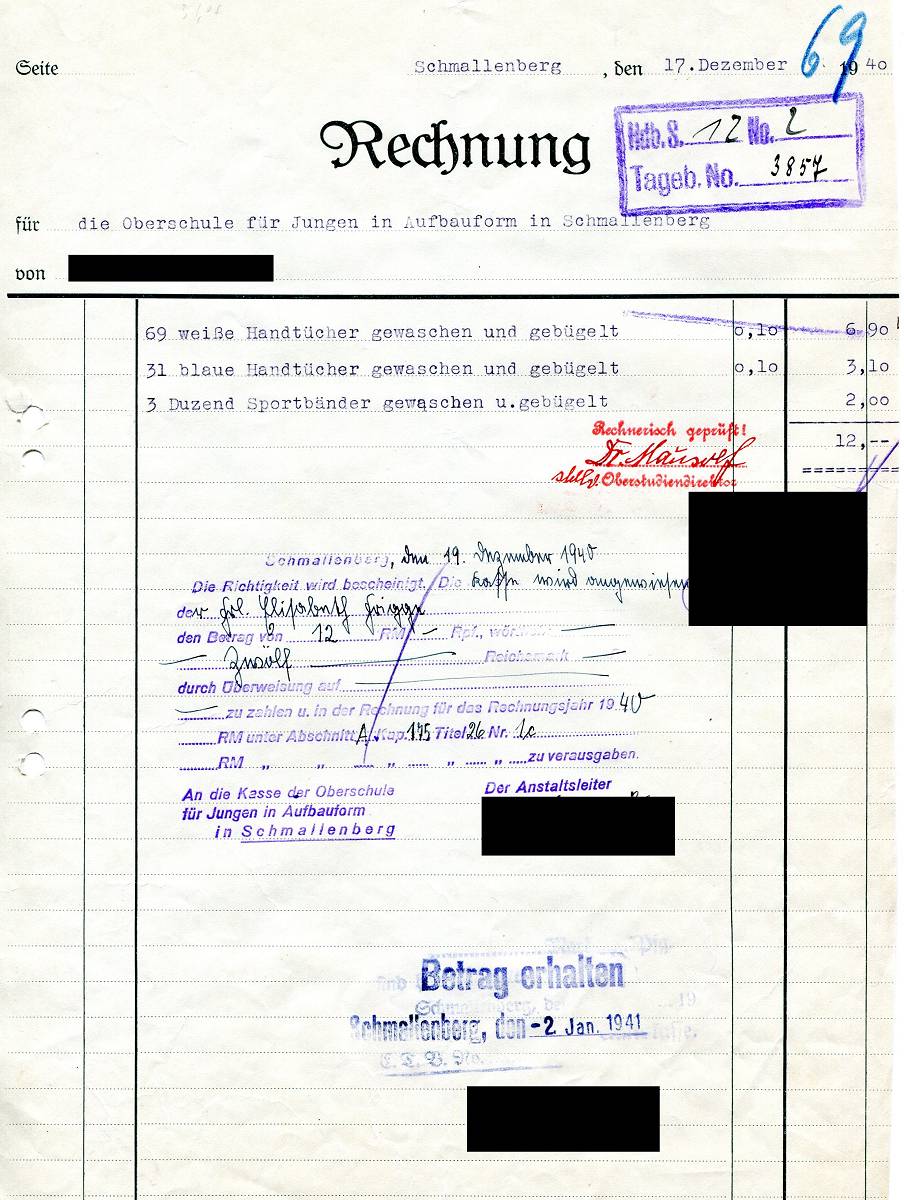 69
Seite Schmallenberg, den 17.Dezember 1940
Rechnung
Hdb.S. 12 No. 2
Tageb. No. 3857
für die Oberschule für Jungen in Aufbauform in Schmallenberg
von
69 weiße Handtücher gewaschen und gebügelt 0,10 6 90
31 blaue Handtücher gewaschen und gebügelt 0,10 3,10
3 Duzend Sportbänder gewaschen u.gebügelt 2,00
12,--
Rechnerisch geprüft!
Dr. Mausolf
stellv. Oberstudiendirektor
Schmallenberg, den 19. Dezember 1940
Die Richtigkeit wird bescheinigt. Die Kasse wird angewiesen
der Frl. Elisabeth Frigge
den Betrag von 12 RM — Rpf., wörtlich
Zwölf Reichsmark
durch Überweisung auf
zu zahlen u. in der Rechnung für das Rechnungsjahr 1940
RM unter Abschnitt A Kap. 195 Titel 26 Nr. 1c
RM " " " " " zu verausgaben.
An die Kasse der Oberschule
für Jungen in Aufbauform
in Schmallenberg
Der Anstaltsleiter
Betrag erhalten
Schmallenberg, den -2. Jan. 1941
E. T. B. No.